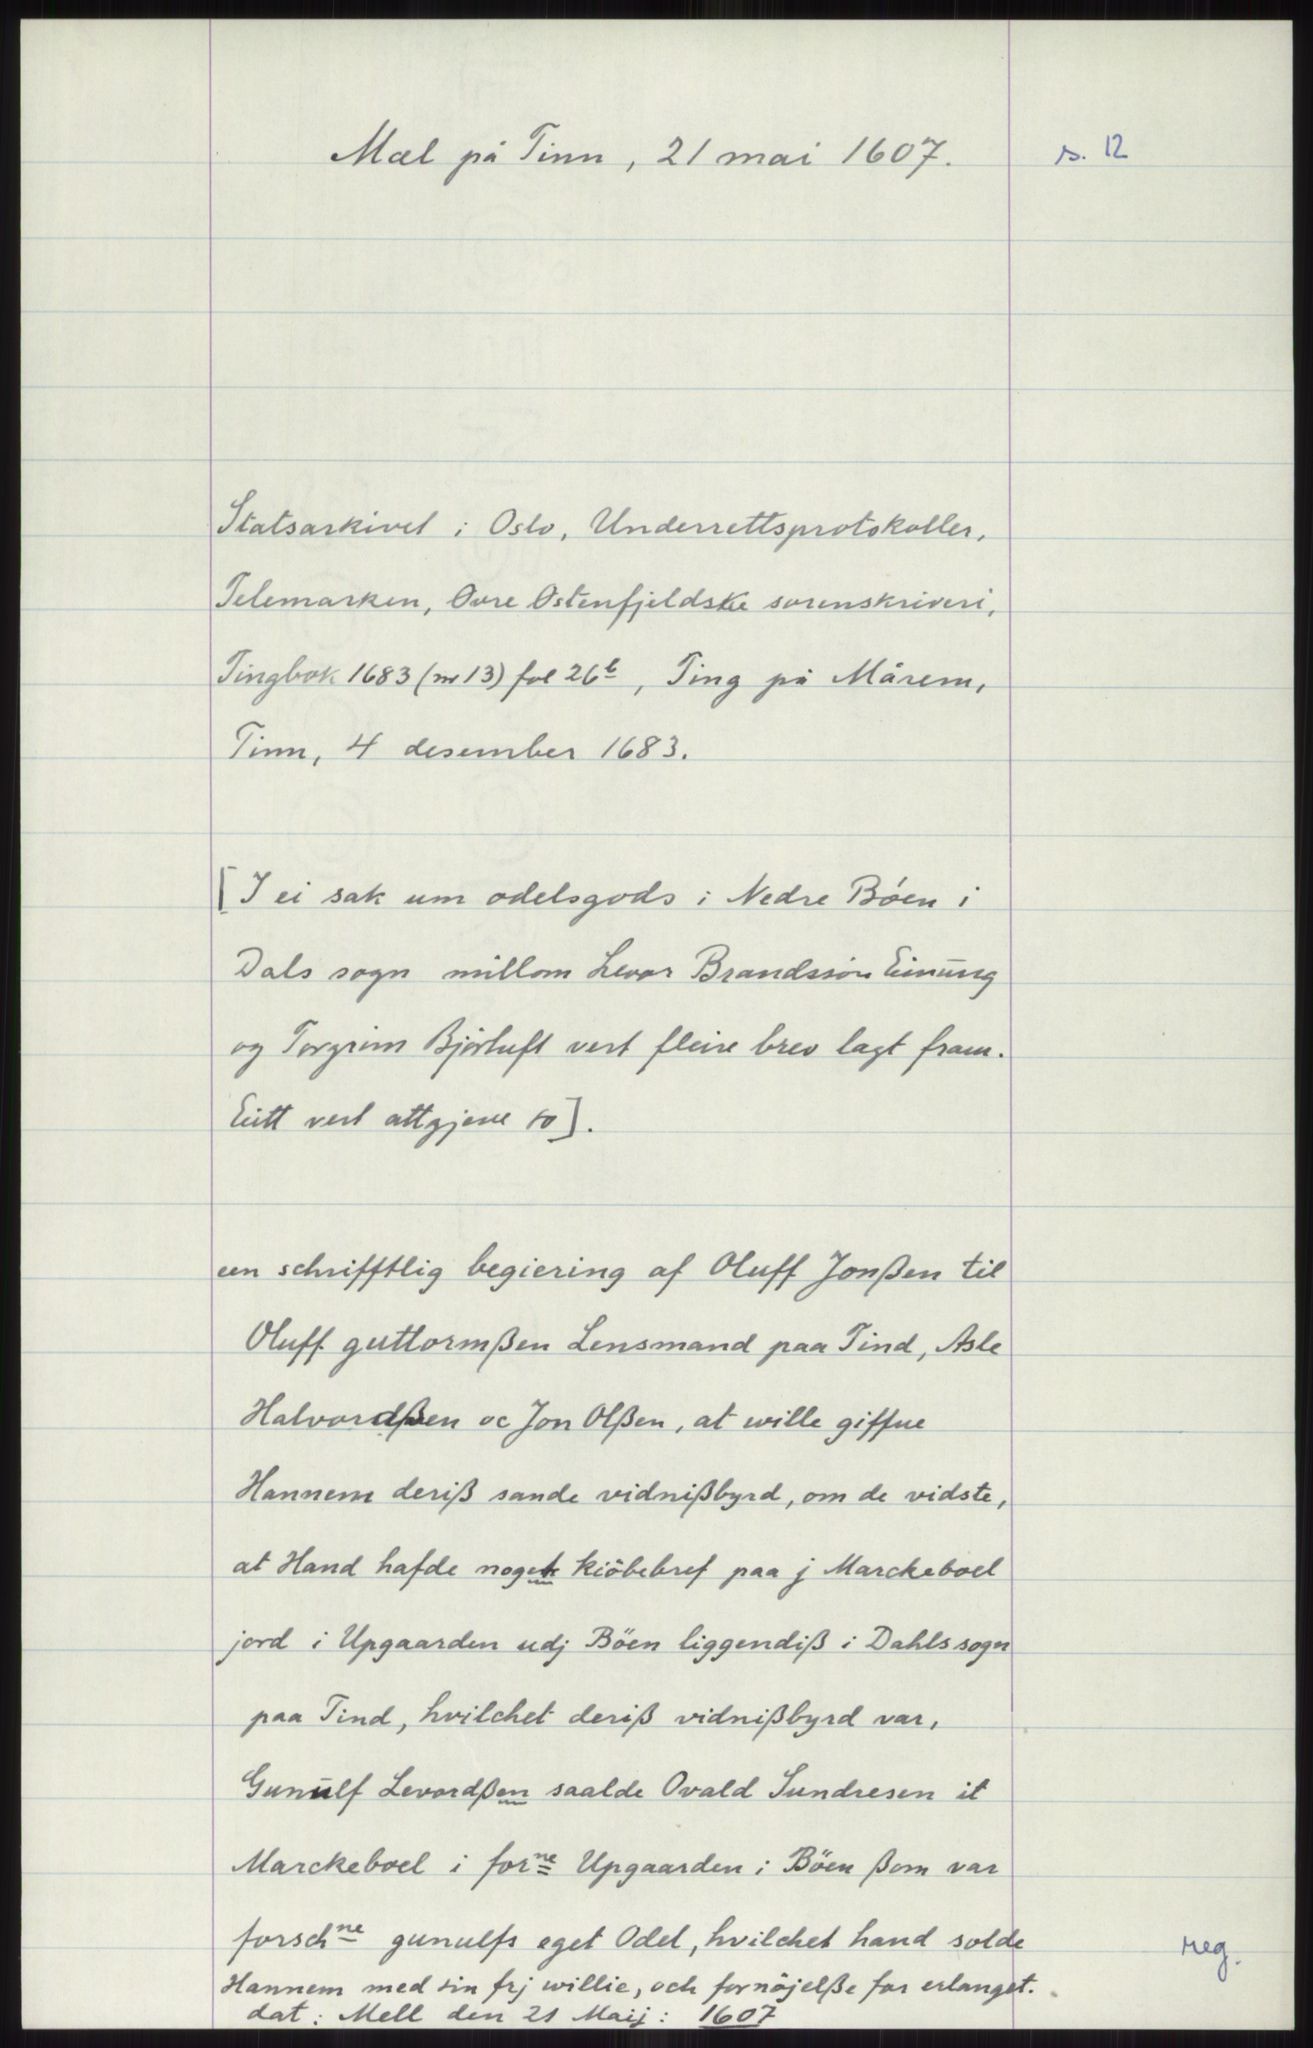 Mæl på Tinn, 21 mai 1607.
s. 12
Statsarkivet i Oslo, Underrettsprotokoller,
Telemarken, Øvre Østenfjeldske sorenskriveri,
Tingbok 1683 (nr 13) fol 26b, Ting på Mårem,
Tinn, 4 desember 1683.
[I ei sak um odelsgods i Nedre Bøen i
Dals sogn millom Levor Brandssøn Einung
og Torgrim Bjørtuft vert fleire brev lagt fram.
Eitt vert attgjeve so].
een schrifftlig begiering af Oluff Jonßen til
Oluff guttormßen Lensmand paa Tind, Asle
Halvordßen oc Jon Olßen, at wille giffue
Hannem deriß sande vidnißbyrd, om de vidste,
at Hand hafde noget kiöbebref paa j Marckeboel
jord i Upgaarden udj Böen liggendiß i Dahls sogn
paa Tind, hvilchet deriß vidnißbyrd var,
Gunulf Levordßen saalde Ovald Sundresen it
Marckeboel i forne Upgaarden i Böen ßom var
forschne gunulfs eget Odel, hvilchet hand solde
Hannem med sin frj willie, och fornöjelße for erlanget.
dat: Mell den 21 Maij: 1607
reg.